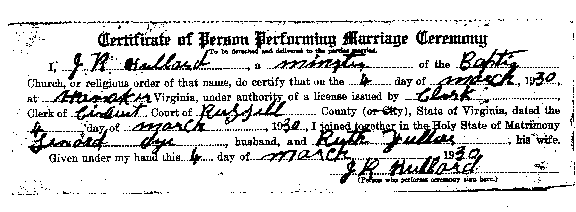 Certificate of Person Performing Marriage Ceremony
(To be detached and delivered to the parties married.)
I, J R Hullard, a minister of the Baptis
Church, or religious order of that name, do certify that on the 4 day of march, 1930
at Virginia, under authority of a license issued by Clerk
Clerk of Circuit Court of Russell County (or City), State of Virginia, dated the
4 day of march, 1930, I joined together in the Holy State of Matrimony
Lenard Dye husband, and Ruth Fuller, his wife.
Given under my hand this 4 day of march 1930
J R Hullard
(Person who performs ceremony sign here.)